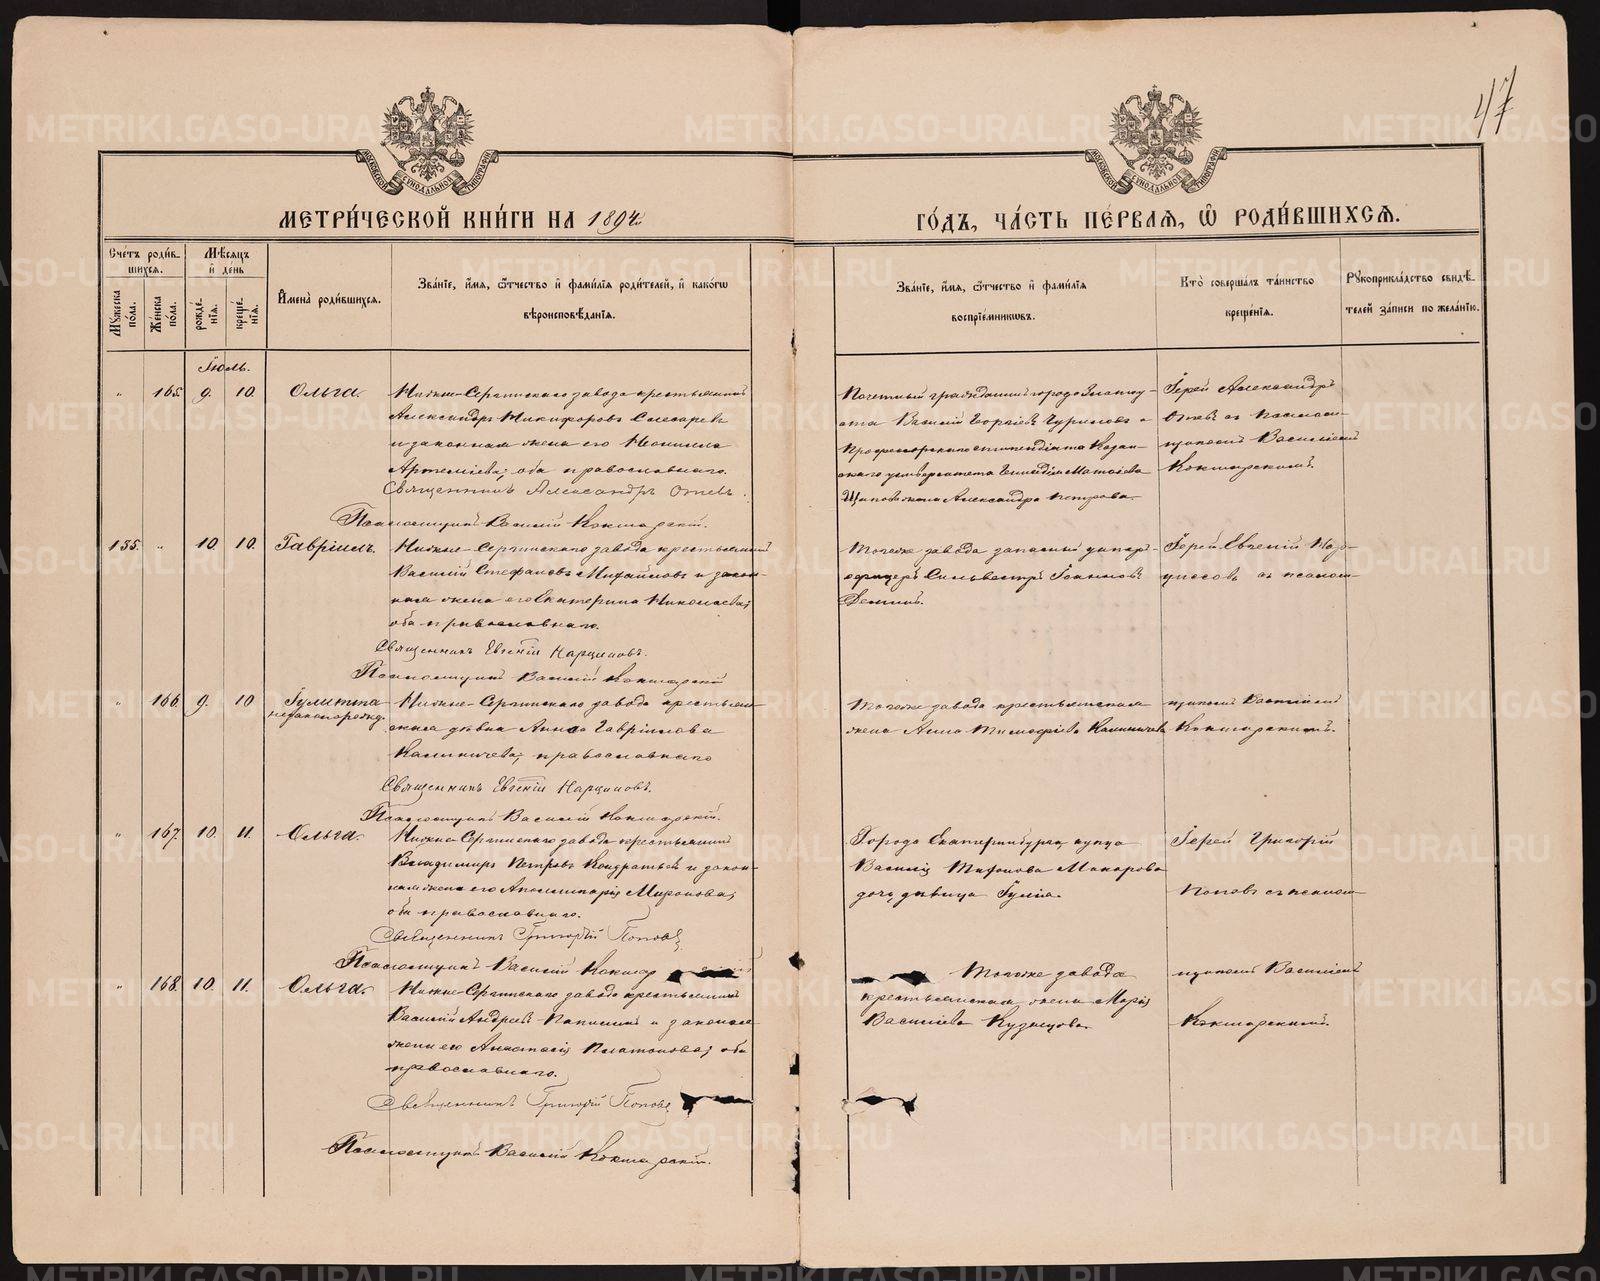 47
МОСКОВСКОЙ СУНОДАЛЬНОЙ ТИПОГРАФІИ
МОСКОВСКОЙ СУНОДАЛЬНОЙ ТИПОГРАФІИ
МЕТРИ́ЧЕСКОЙ КНИ́ГИ НА 1894
ГО́ДЪ, ЧА́СТЬ ПЕ́РВАѦ, Ѽ РОДИ́ВШИХСѦ.
Сче́тъ роди́в-
шихсѧ.
Мꙋ́жеска по́ла.
Же́нска по́ла.
Мѣ́сѧцъ
и҆ день
рожде́нїѧ.
креще́нїѧ.
И҆мена̀ роди́вшихсѧ.
Зва́нїе, и҆́мѧ, ѻ҆́тчество и҆ фами́лїѧ роди́телей, и҆ како́гѡ
вѣроисповѣ́данїѧ.
Зва́нїе, и҆́мѧ, ѻ҆́тчество и҆ фами́лїѧ
воспрїе́мниковъ.
Кто̀ соверша́лъ та́инство
креще́нїѧ.
Рꙋкоприкла́дство свидѣ́-
телей за́писи по жела́нїю.
Іюль.
" 165. 9. 10. Ольга.
Нижне-Сергинскаго завода крестьянинъ
Александръ Никифоровъ Слесаревъ
и законная жена его Неонилла
Артеміева; оба православнаго.
Священникъ Александръ
Псаломщикъ Василій Кокшарскій.
Почетный гражданинъ города Златоу-
ста Василій Георгіевъ Чуриловъ и
Профессорскаго стипендіата Казан-
скаго университета
жена Александра Петрова.
Іерей Александръ
съ псалом-
щикомъ Василіемъ
Кокшарскимъ.
135. " 10. 10. Гавріилъ.
Нижне-Сергинскаго завода крестьянинъ
Василій Стефановъ Михайловъ и закон-
ная жена его Екатерина Николаева;
оба православнаго.
Священникъ Евгеній Нарциссовъ.
Псаломщикъ Василій Кокшарскій
Тогоже завода запасный унтеръ-
офицеръ Сильвестръ Іоанновъ
Деминъ.
Іерей Евгеній Нар-
циссовъ съ псалом-
" 166. 9. 10 Іулитта
незаконорожд.
Нижне-Сергинскаго завода крестьян-
ская дѣвка Анна Гавріилова
Калиничева; православнаго
Священникъ Евгеній Нарциссовъ.
Псаломщикъ Василій Кокшарскій.
Тогоже завода крестьянская
жена Анна Тимофеева Калиничева
щикомъ Василіемъ
Кокшарскимъ.
" 167. 10. 11. Ольга.
Нижне-Сергинскаго завода крестьянинъ
Владимиръ Петровъ Кондратьевъ и закон-
ная жена его Аполлинарія Миронова;
оба православнаго.
Священникъ Григорій Поповъ
Псаломщикъ Василій Кокшар
Города Екатеринбурга купца
Василія Макарова
дочь дѣвица Юлія.
Іерей Григорій
Поповъ съ псалом-
" 168. 10. 11. Ольга.
Нижне-Сергинскаго завода крестьянинъ
Василій Андреевъ и законная
жена его Анастасія Платонова; оба
православнаго.
Священникъ Григорій Поповъ
Псаломщикъ Василій Кокшарскій.
Тогоже завода
крестьянская жена Марія
Василіева Кузнецова.
щикомъ Василіемъ
Кокшарскимъ.
METRIKI.GASO-URAL.RU